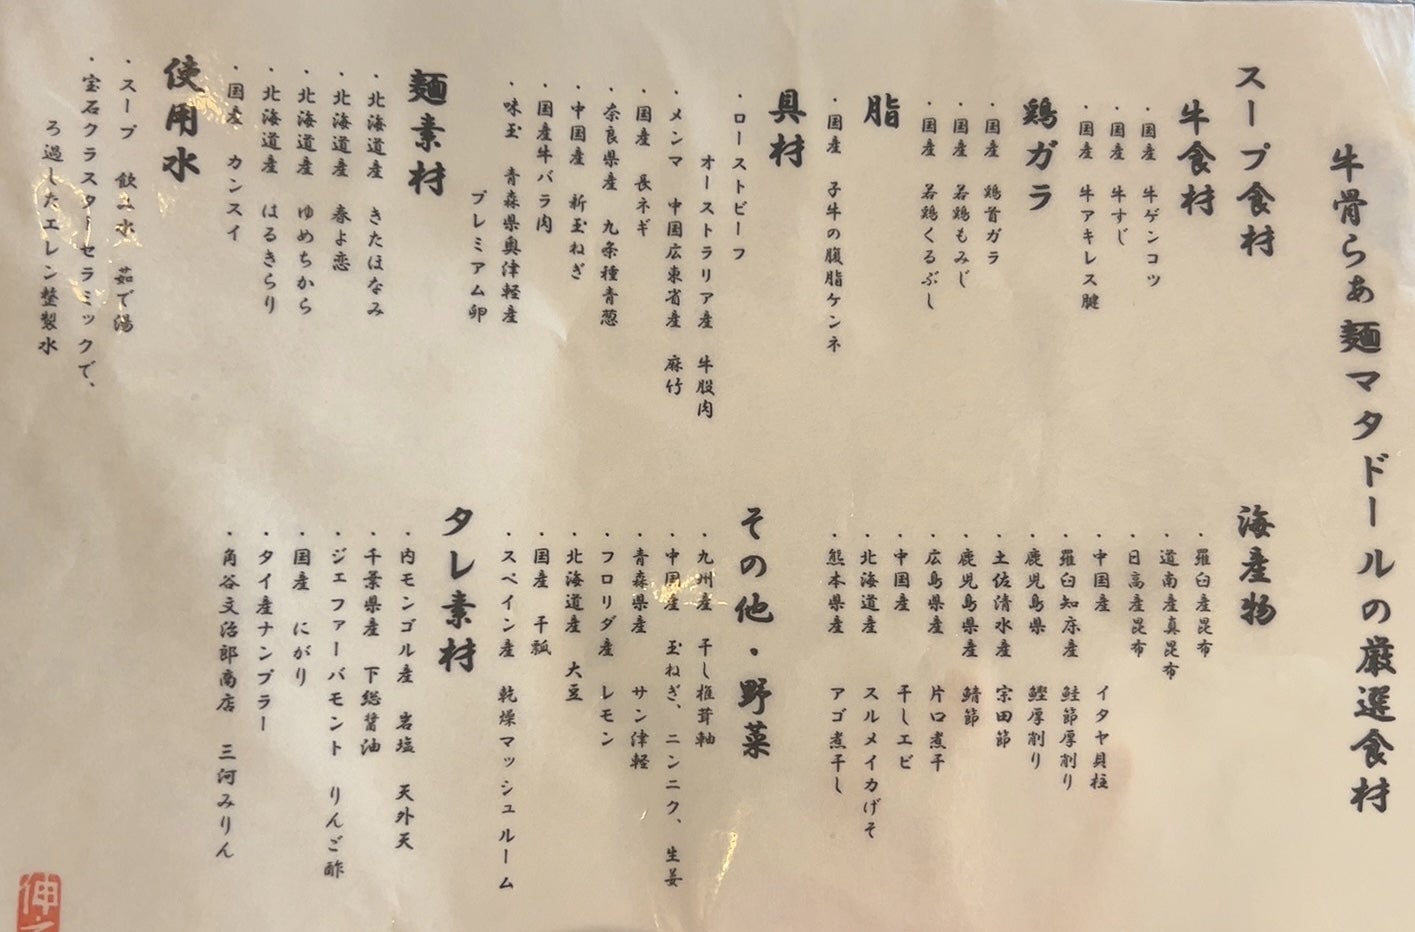 牛骨らぁ麺マタドールの厳選食材
スープ食材
牛食材
・国産 牛ゲンコツ
・国産 牛すじ
・国産 牛アキレス腱
鶏ガラ
・国産 鶏首ガラ
・国産 若鶏もみじ
・国産 若鶏くるぶし
脂
・国産 子牛の腹脂ケンネ
具材
・ローストビーフ
オーストラリア産 牛股肉
・メンマ 中国広東省産 麻竹
・国産 長ネギ
・奈良県産 九条種青葱
・中国産 新玉ねぎ
・国産牛バラ肉
・味玉 青森県奥津軽産
プレミアム卵
麺素材
・北海道産 きたほなみ
・北海道産 春よ恋
・北海道産 ゆめちから
・北海道産 はるきらり
・国産 カンスイ
使用水
・スープ 飲み水 茹で湯
・宝石クラスターセラミックで、
ろ過したエレン整製水
海産物
・羅臼産昆布
・道南産真昆布
・日高産昆布
・中国産 イタヤ貝柱
・羅臼知床産 鮭節厚削り
・鹿児島県 鰹厚削り
・土佐清水産 宗田節
・鹿児島県産 鯖節
・広島県産 片口煮干
・中国産 干しエビ
・北海道産 スルメイカげそ
・熊本県産 アゴ煮干し
その他・野菜
・九州産 干し椎茸軸
・中国産 玉ねぎ、ニンニク、生姜
・青森県産 サン津軽
・フロリダ産 レモン
・北海道産 大豆
・国産 干瓢
・スペイン産 乾燥マッシュルーム
タレ素材
・内モンゴル産 岩塩 天外天
・千葉県産 下総醤油
・ジェファーバモント りんご酢
・国産 にがり
・タイ産ナンプラー
・角谷文治郎商店 三河みりん
伸